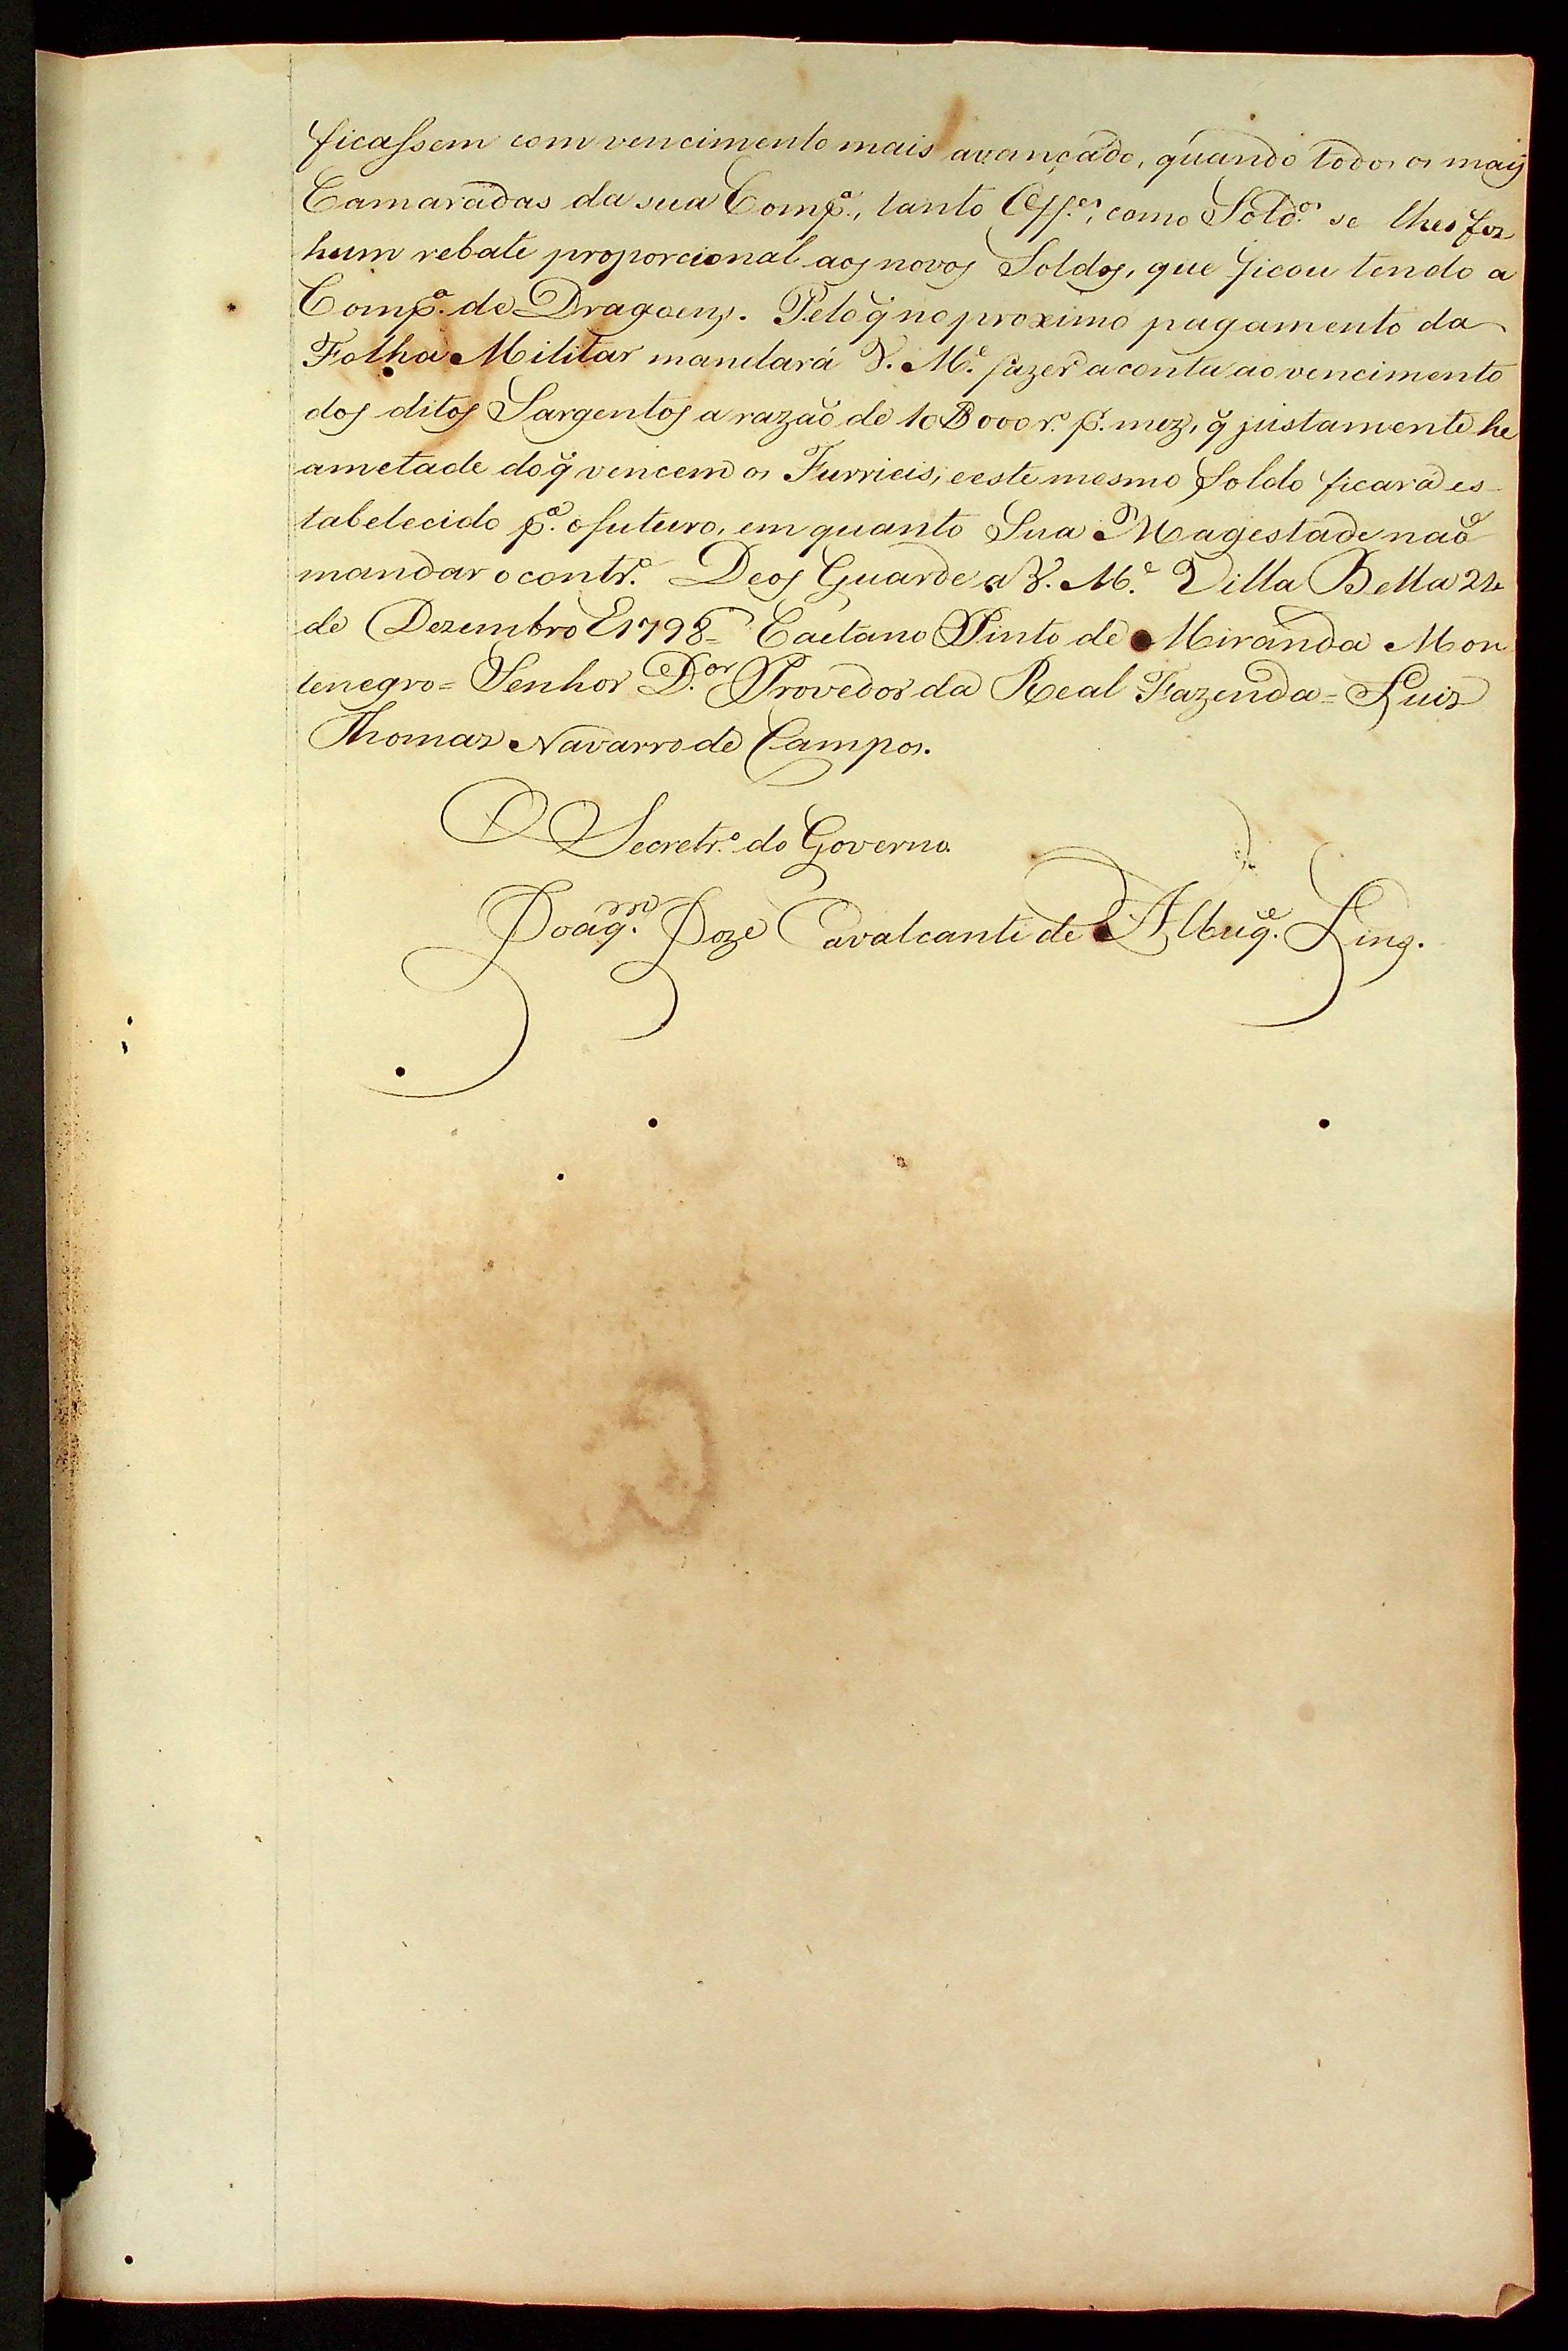 ficassem com vencimento mais avançado, quando todos os mais
Camaradas da sua Comp.ª, tanto Off.es, como Sold.os se lhes fez
hum rebate proporcional aos novos Soldos, que ficou tendo a
Comp.ª de Dragoens. Pelo q̃ no proximo pagamento da
Folha Militar mandará V. M.e fazer a conta ao vencimento
dos ditos Sargentos a razaõ de 10$000 r.s p. mez, q̃ justamente he
ametade do q̃ vencem os Furrieis, e este mesmo Soldo ficará es-
tabelecido p.ª o futuro, em quanto Sua Magestade naõ
mandar o contr.º Deos Guarde a V. M.e Villa Bella 24
de Dezembro 1798= Caetano Pinto de Miranda Mon
tenegro= Senhor D.or Provedor da Real Fazenda= Luiz
Thomaz Navarro de Campos.
O Secretr.º do Governo
Joaq.m Joze Cavalcanti de Albuq.e Lins.